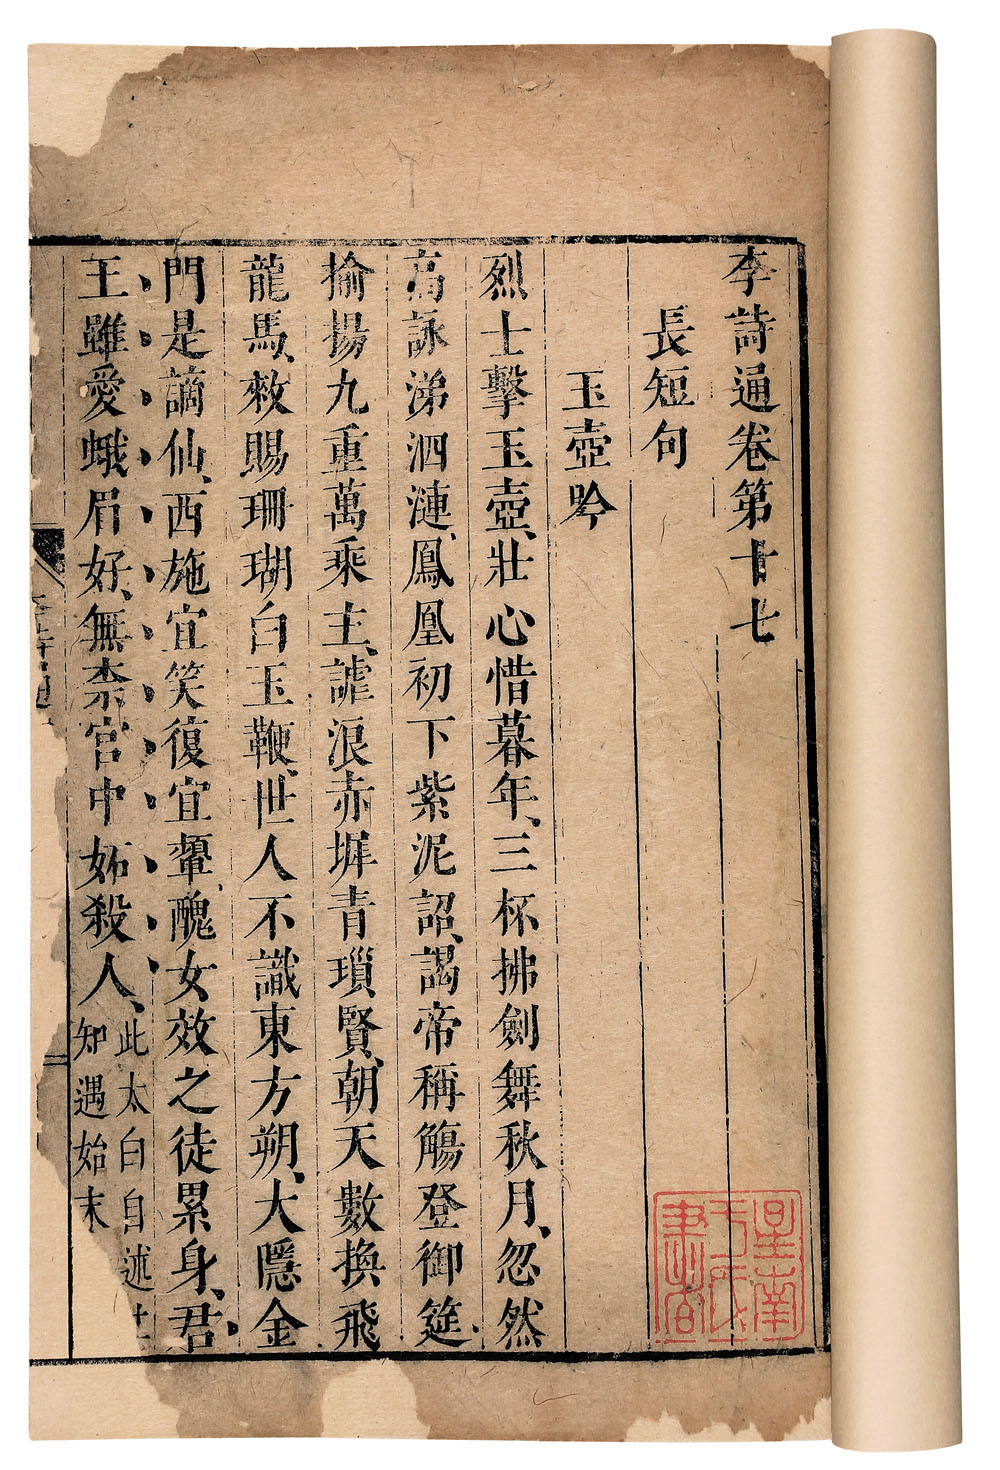 李詩通卷第十七
長短句
玉壺吟
烈士擊玉壺、壯心惜暮年、三杯拂劍舞秋月、忽然
高詠涕泗漣、鳳凰初下紫泥詔、謁帝稱觴登御筵、
揄揚九重萬乘主、謔浪赤墀青瑣賢、朝天數換飛
龍馬、敕賜珊瑚白玉鞭、世人不識東方朔、大隱金
門是謫仙、西施宜笑復宜顰、醜女效之徒累身、君
王雖愛蛾眉好、無柰宮中妬殺人、
此太白自述
知遇始末